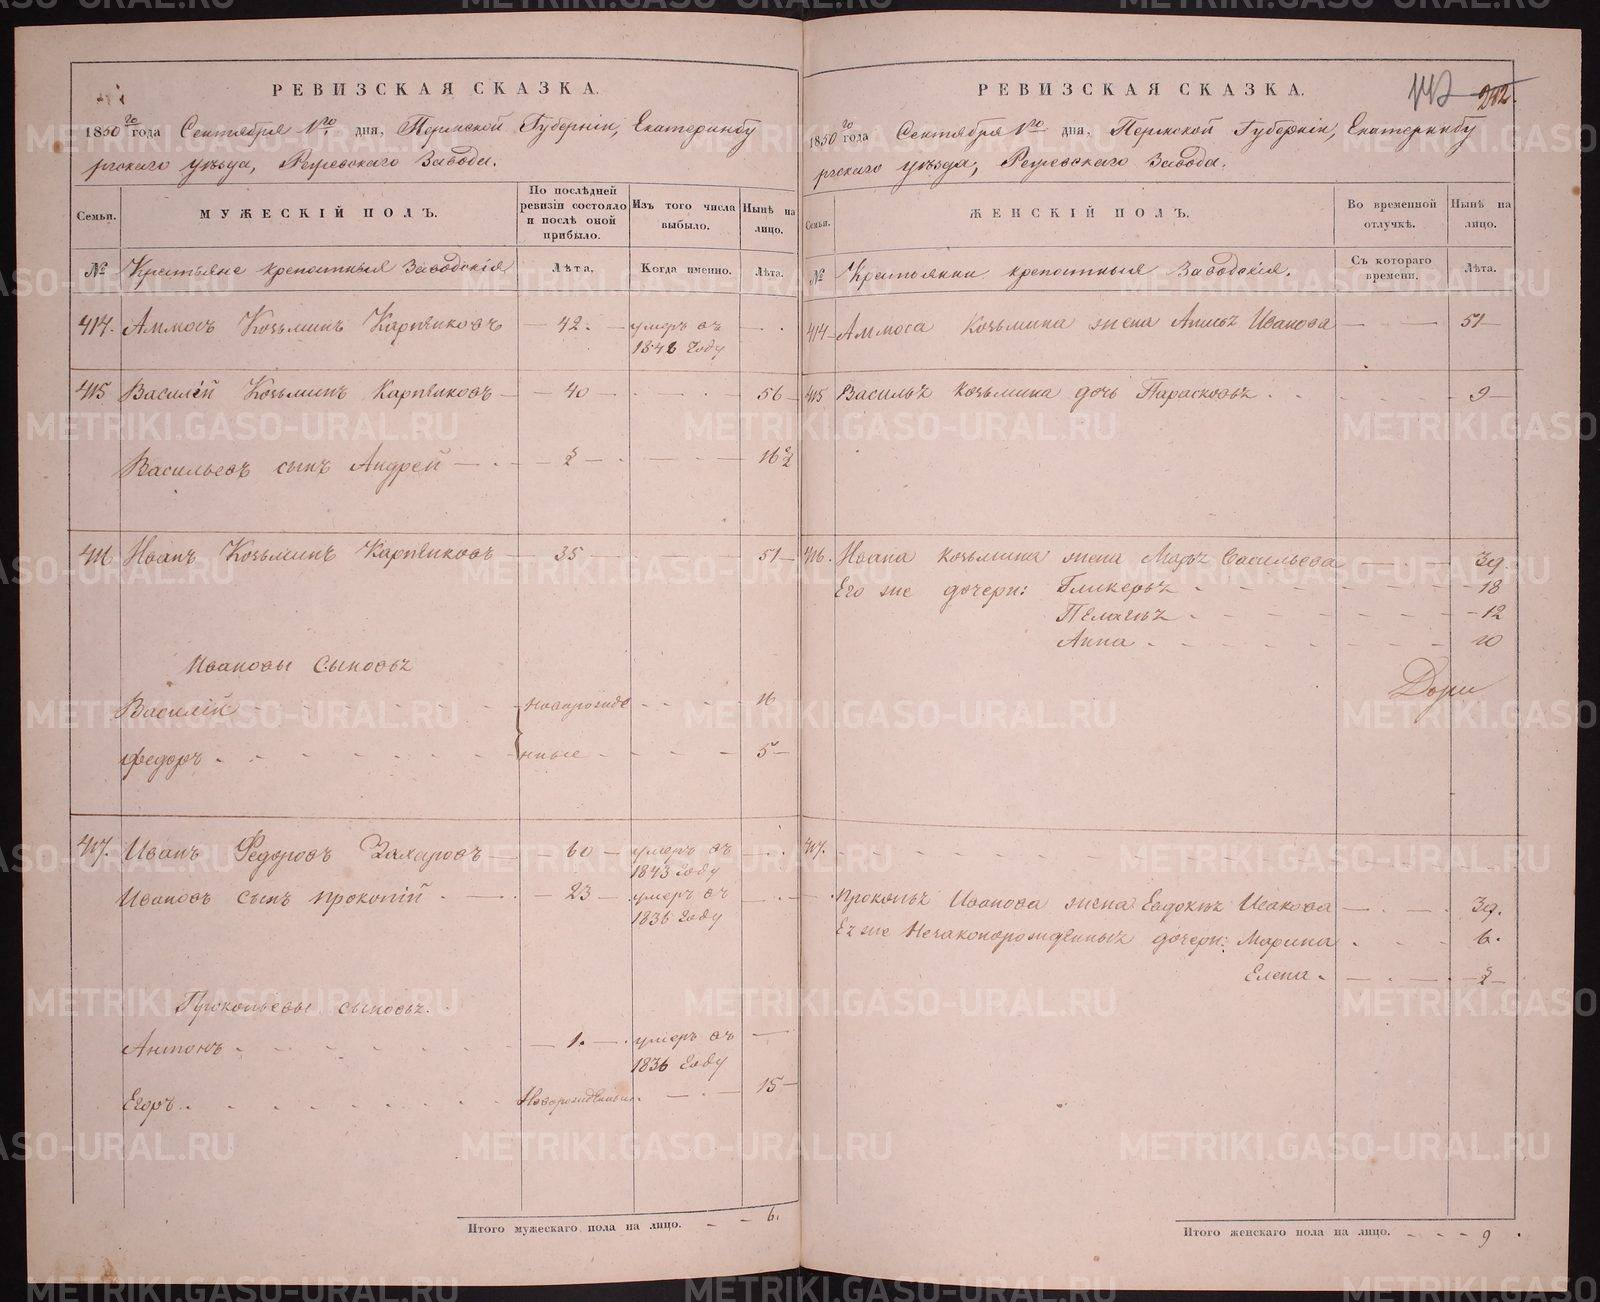 РЕВИЗСКАЯ СКАЗКА.
1850го года Сентября 1го дня, Пермской Губернiи, Екатеринбу
ргскаго уѣзда, Режевскаго Завода.
Семьи. МУЖЕСКIЙ ПОЛЪ. По послѣдней ревизiи состояло и послѣ оной прибыло. Изъ того числа выбыло. Нынѣ на лицо.
№ Крестьяне крепостныя Заводскiя Лѣта. Когда именно. Лѣта.
414. Аммосъ Козьминъ Карпѣковъ — 42. — умеръ въ
1848 Году
415 Василiй Козьминъ Карпѣковъ — 40 — 56
Васильевъ сынъ Андрей — ½ — 16½
416 Иванъ Козьминъ Карпѣковъ 35 51
Ивановы Сыновьѣ
Василiй новорожде 16
Федоръ нные 5
417. Иванъ Федоровъ Захаровъ — 60 — умеръ въ
1843 Году
Ивановъ сынъ прокопiй — 23 — умеръ въ
1836 Году
Прокопьевы сыновьѣ.
Антонъ — 1. — умеръ въ
1836 Году
Егоръ Новорожденный 15
Итого мужескаго пола на лицо. 6.
РЕВИЗСКАЯ СКАЗКА.
212.
1850го года Сентября 1го дня, Пермской Губернiи, Екатеринбу
ргскаго уѣзда, Режевскаго Завода.
Семьи. ЖЕНСКIЙ ПОЛЪ. Во временной отлучкѣ. Нынѣ на лицо.
№ Крестьянки крепостныя Заводскiя. Съ котораго времени. Лѣта.
414 Аммоса Козьмина жена Анисья Иванова 51
415 Василья Козьмина дочь Парасковья 9
416. Ивана Козьмина жена Марья Васильева 39.
Его же дочери: Гликерья 18
Пелагея 12
Анна 10
417.
Прокопья Иванова жена Евдокья Исакова 39.
Ея же Незаконорожденныя дочери: Марина 6.
Елена. ½
Итого женскаго пола на лицо. 9
METRIKI.GASO-URAL.RU